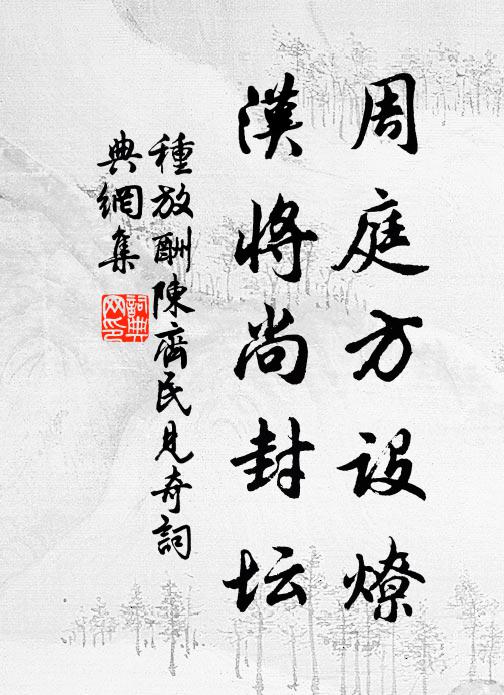 周庭方设燎
漢將尚封坛
種放酬陳齊民見奇詞
典網集
詞典
网印